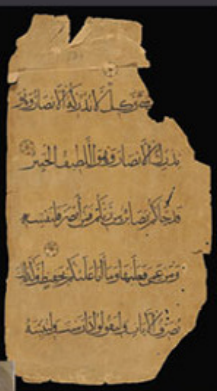 وكيل لا تدركه الابصار وهو
يدرك الابصار وهو اللطيف الخبير
قد جاكم بصائر من ربكم فمن ابصر فلنفسه
ومن عمي فعليها وما انا عليكم بحفيظ وكذلك
نصرف الايات وليقولوا درست ولنبينه